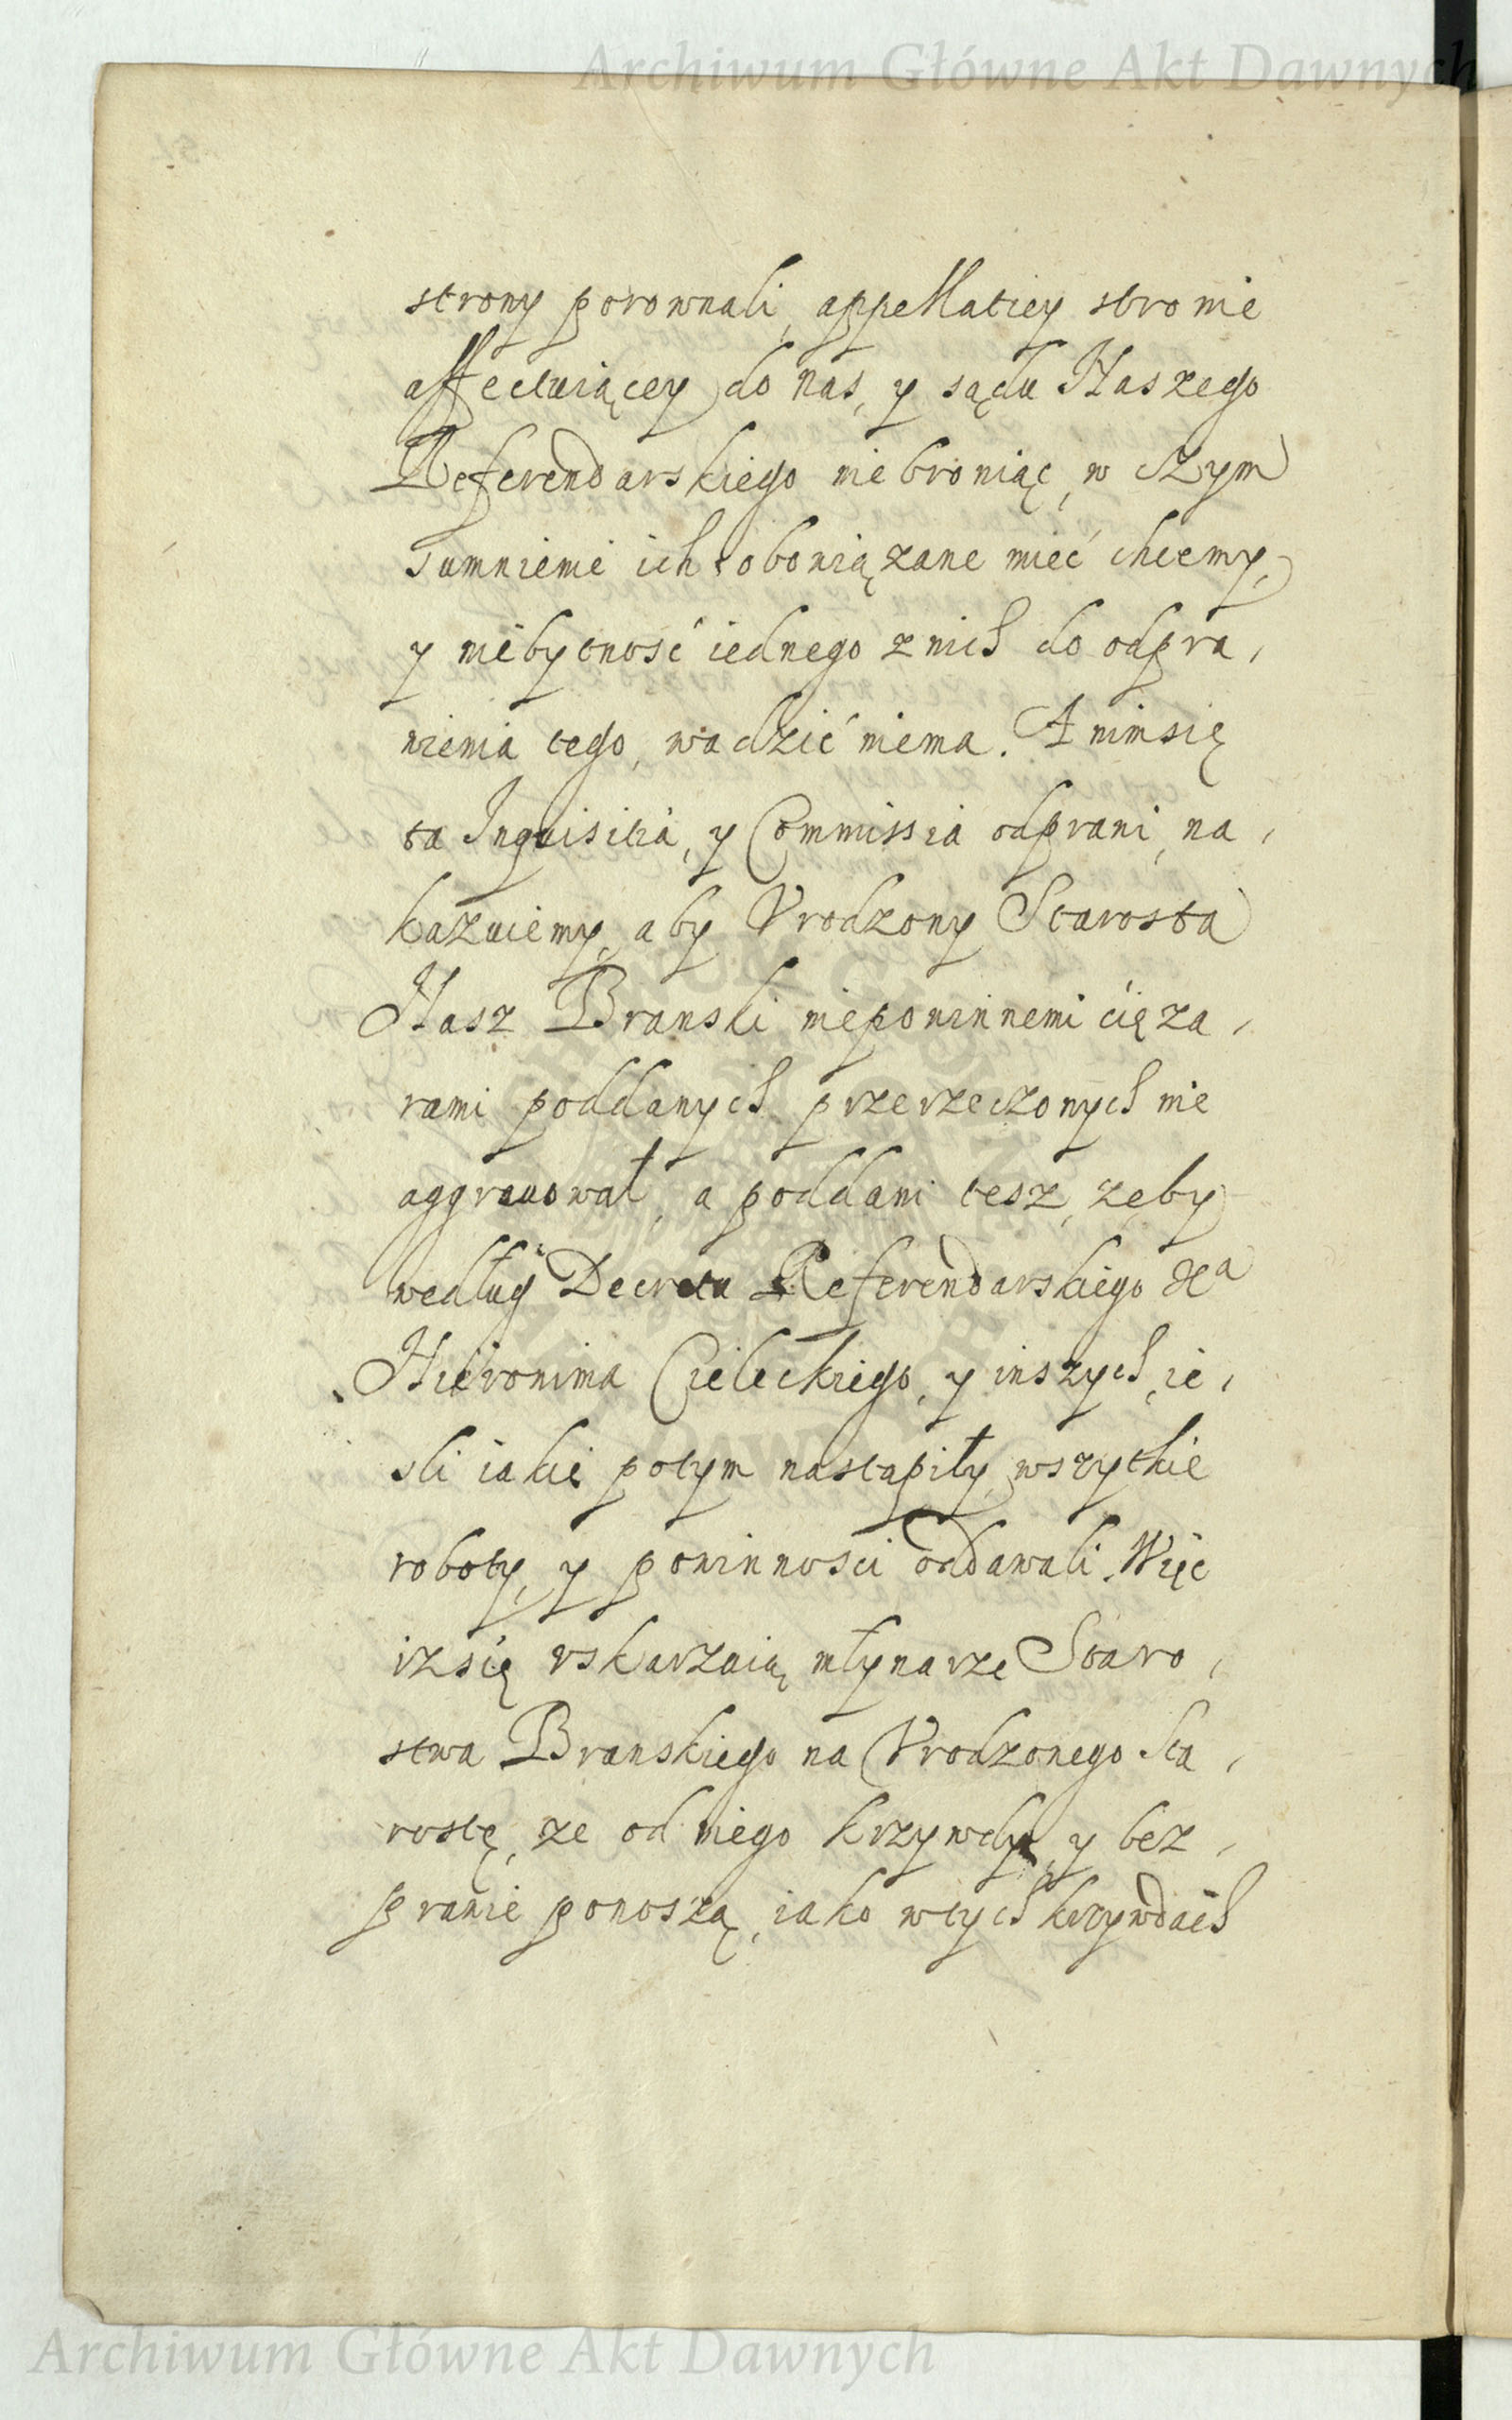 Archiwum Główne Akt Dawnych
strony porownali, appellatiey stronie
affectuiącey do nas, y sądu Naszego
Referendarskiego niebroniąc, w czym
sumnienie ich obowiązane mieć chcemy,
y niebytność iednego znich do odpra,
wienia tego, wadzić niema. A nimsię
ta Inquisitia, y Commissia odprawi, na,
kazuiemy, aby Vrodzony Starosta
Nasz Branski niepowinnemi cięza,
rami poddanych przerzeczonych nie
aggrauował, a poddani tesz, zęby
według Decretu Referendarskiego Xa
Hieronima Cieleckiego, y inszych, ie,
sli iakie potym nastapiły, wszytkie
roboty, y powinnosci oddawali. Więc
izsię vskarzaią młynarze Staro,
stwa Branskiego na Vrodzonego Sta,
rostę, ze od niego krzywdy, y bez,
prawie ponoszą, iako wtych krzywdach
Archiwum Główne Akt Dawnych